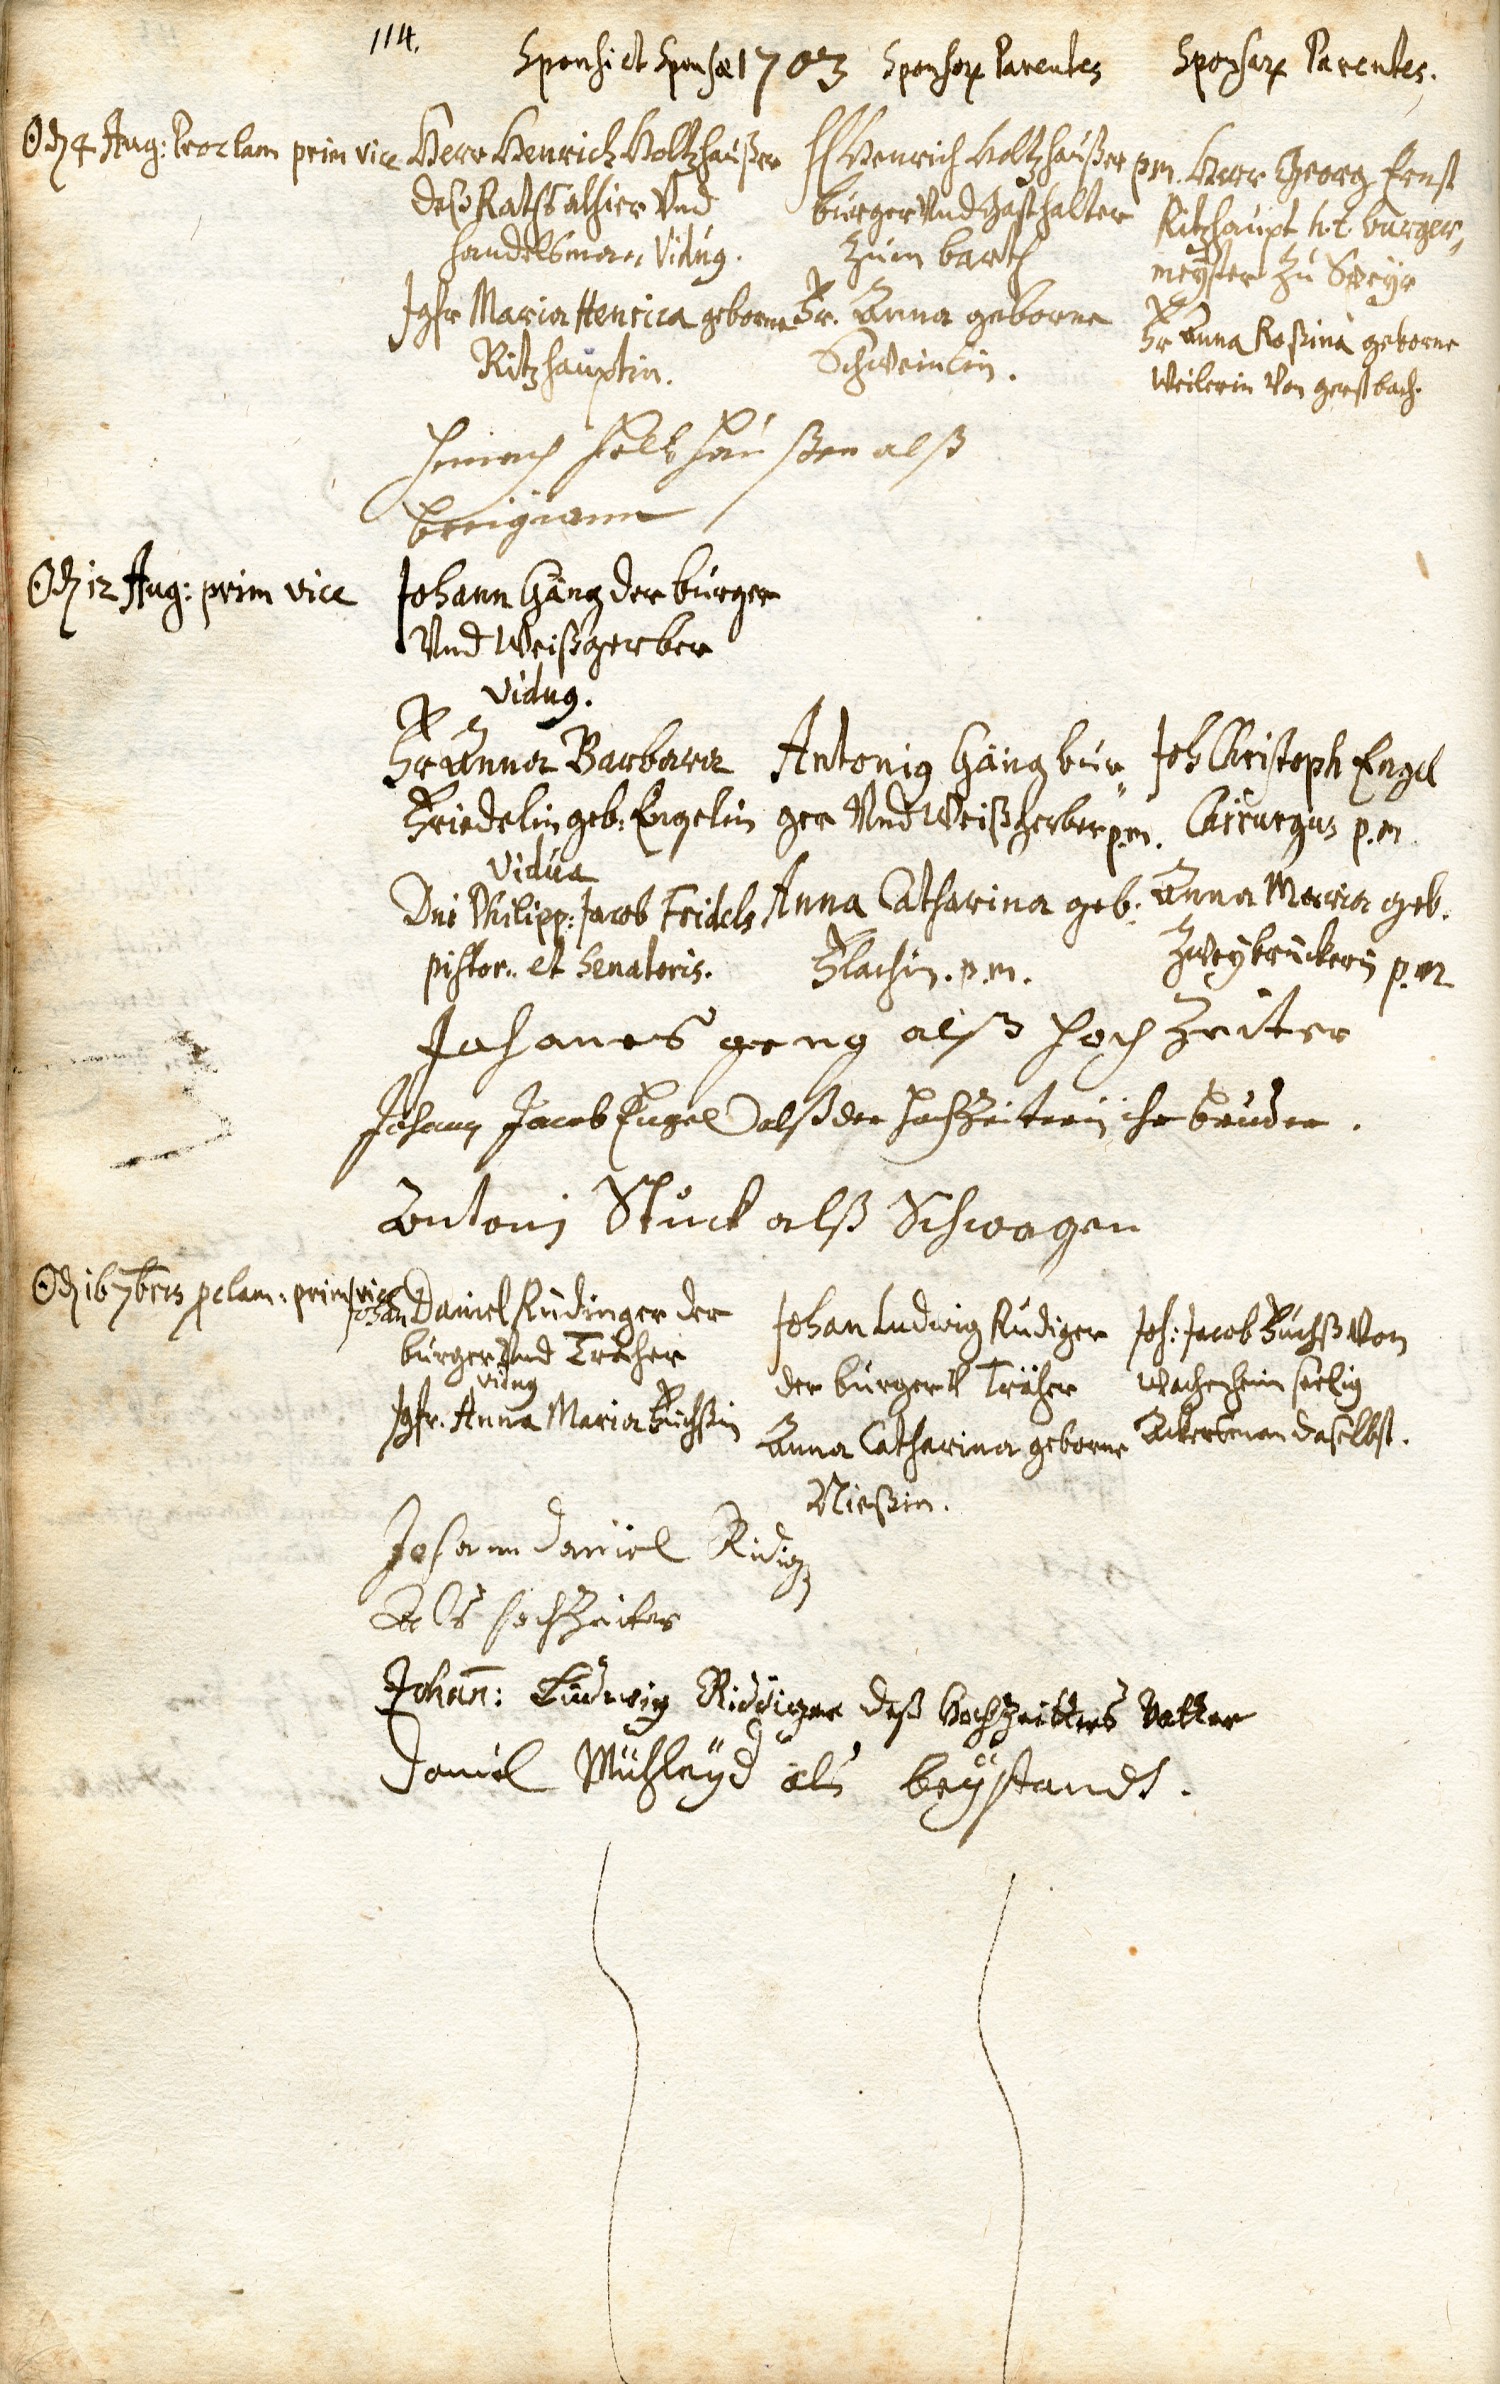 114.
Sponsi et Sponsæ 1703 Sponsor Parentes Sponsæ Parentes.
4 Aug: Proclam prim vice
Herr Henrich Holtzhaußer
deß Raths alhier Vnd
handelsman, Vidug.
Jgfr Maria Henrica geborne
Ritzhauptin.
Henrich Holtzhaußer p.m.
burger Vnd Gasthalter
zum barth
Fr. Anna geborne
Schweinlin.
Herr Georg Ernst
Ritzhaupt h.t. burger
meyster zu Speyr
Fr Anna Rosina geborne
Weilerin Von gerstbach.
Henrich holtzhaußer alß
breigiamm
12 Aug: prim vice
Johann Gäng der burger
Vnd Weißgerber
Vidug.
Fr Anna Barbara
Friedelin geb: Engelin
Vidua
Dni Philipp: Jacob Fridels
pistor.. et Senatoris.
Antonig Gäng bur
ger Vnd Weißgerber p.m.
Anna Catharina geb:
Flachin. p.m.
Joh Christoph Engel
Chirurgus p.m
Anna Maria geb.
Zweybrückerin p.m
Johanes geng alß hoch Zeiter
Johann Jacob Engel alß der hochzeiterin ihr bruder.
Antoni Stuck alß Schwager
16 7bris pclam: prim vice
Johan Daniel Rüdinger der
burger Vnd Träher
vidug
Jgfr. Anna Maria Fuchßin
Johan Ludwig Rüdiger
der burger V Träher
Anna Catharina geborne
Nießin.
Joh: Jacob Fuchß Von
Wachenheim seelig
Ackerßman daselbst.
Johann Daniel Ridig
Als hochzeiter
Johan: Ludwig Ridiger deß hochzeitters Vatter
Daniel Mühleyß als beystandt.